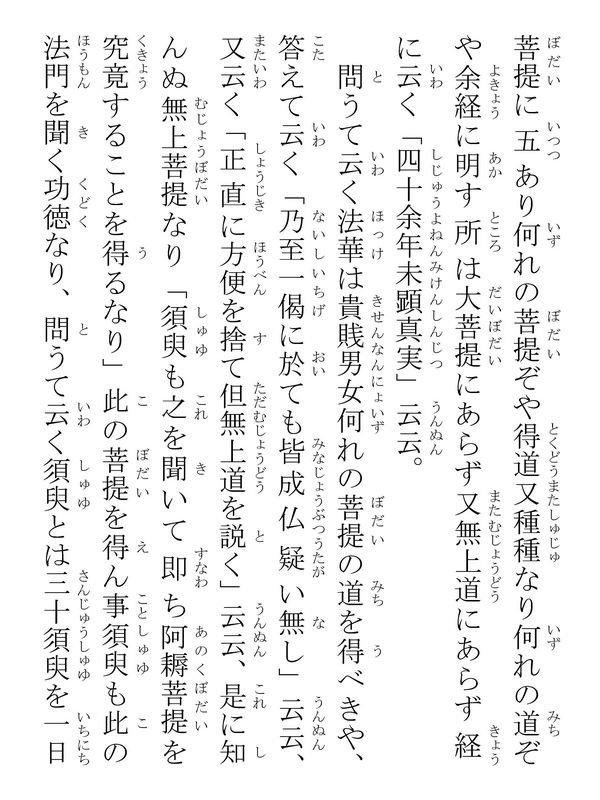 菩提に五あり何れの菩提ぞや得道又種種なり何れの道ぞ
や余経に明す所は大菩提にあらず又無上道にあらず経
に云く「四十余年未顕真実」云云。
問うて云く法華は貴賎男女何れの菩提の道を得べきや、
答えて云く「乃至一偈に於ても皆成仏疑い無し」云云、
又云く「正直に方便を捨て但無上道を説く」云云、是に知
んぬ無上菩提なり「須臾も之を聞いて即ち阿耨菩提を
究竟することを得るなり」此の菩提を得ん事須臾も此の
法門を聞く功徳なり、問うて云く須臾とは三十須臾を一日